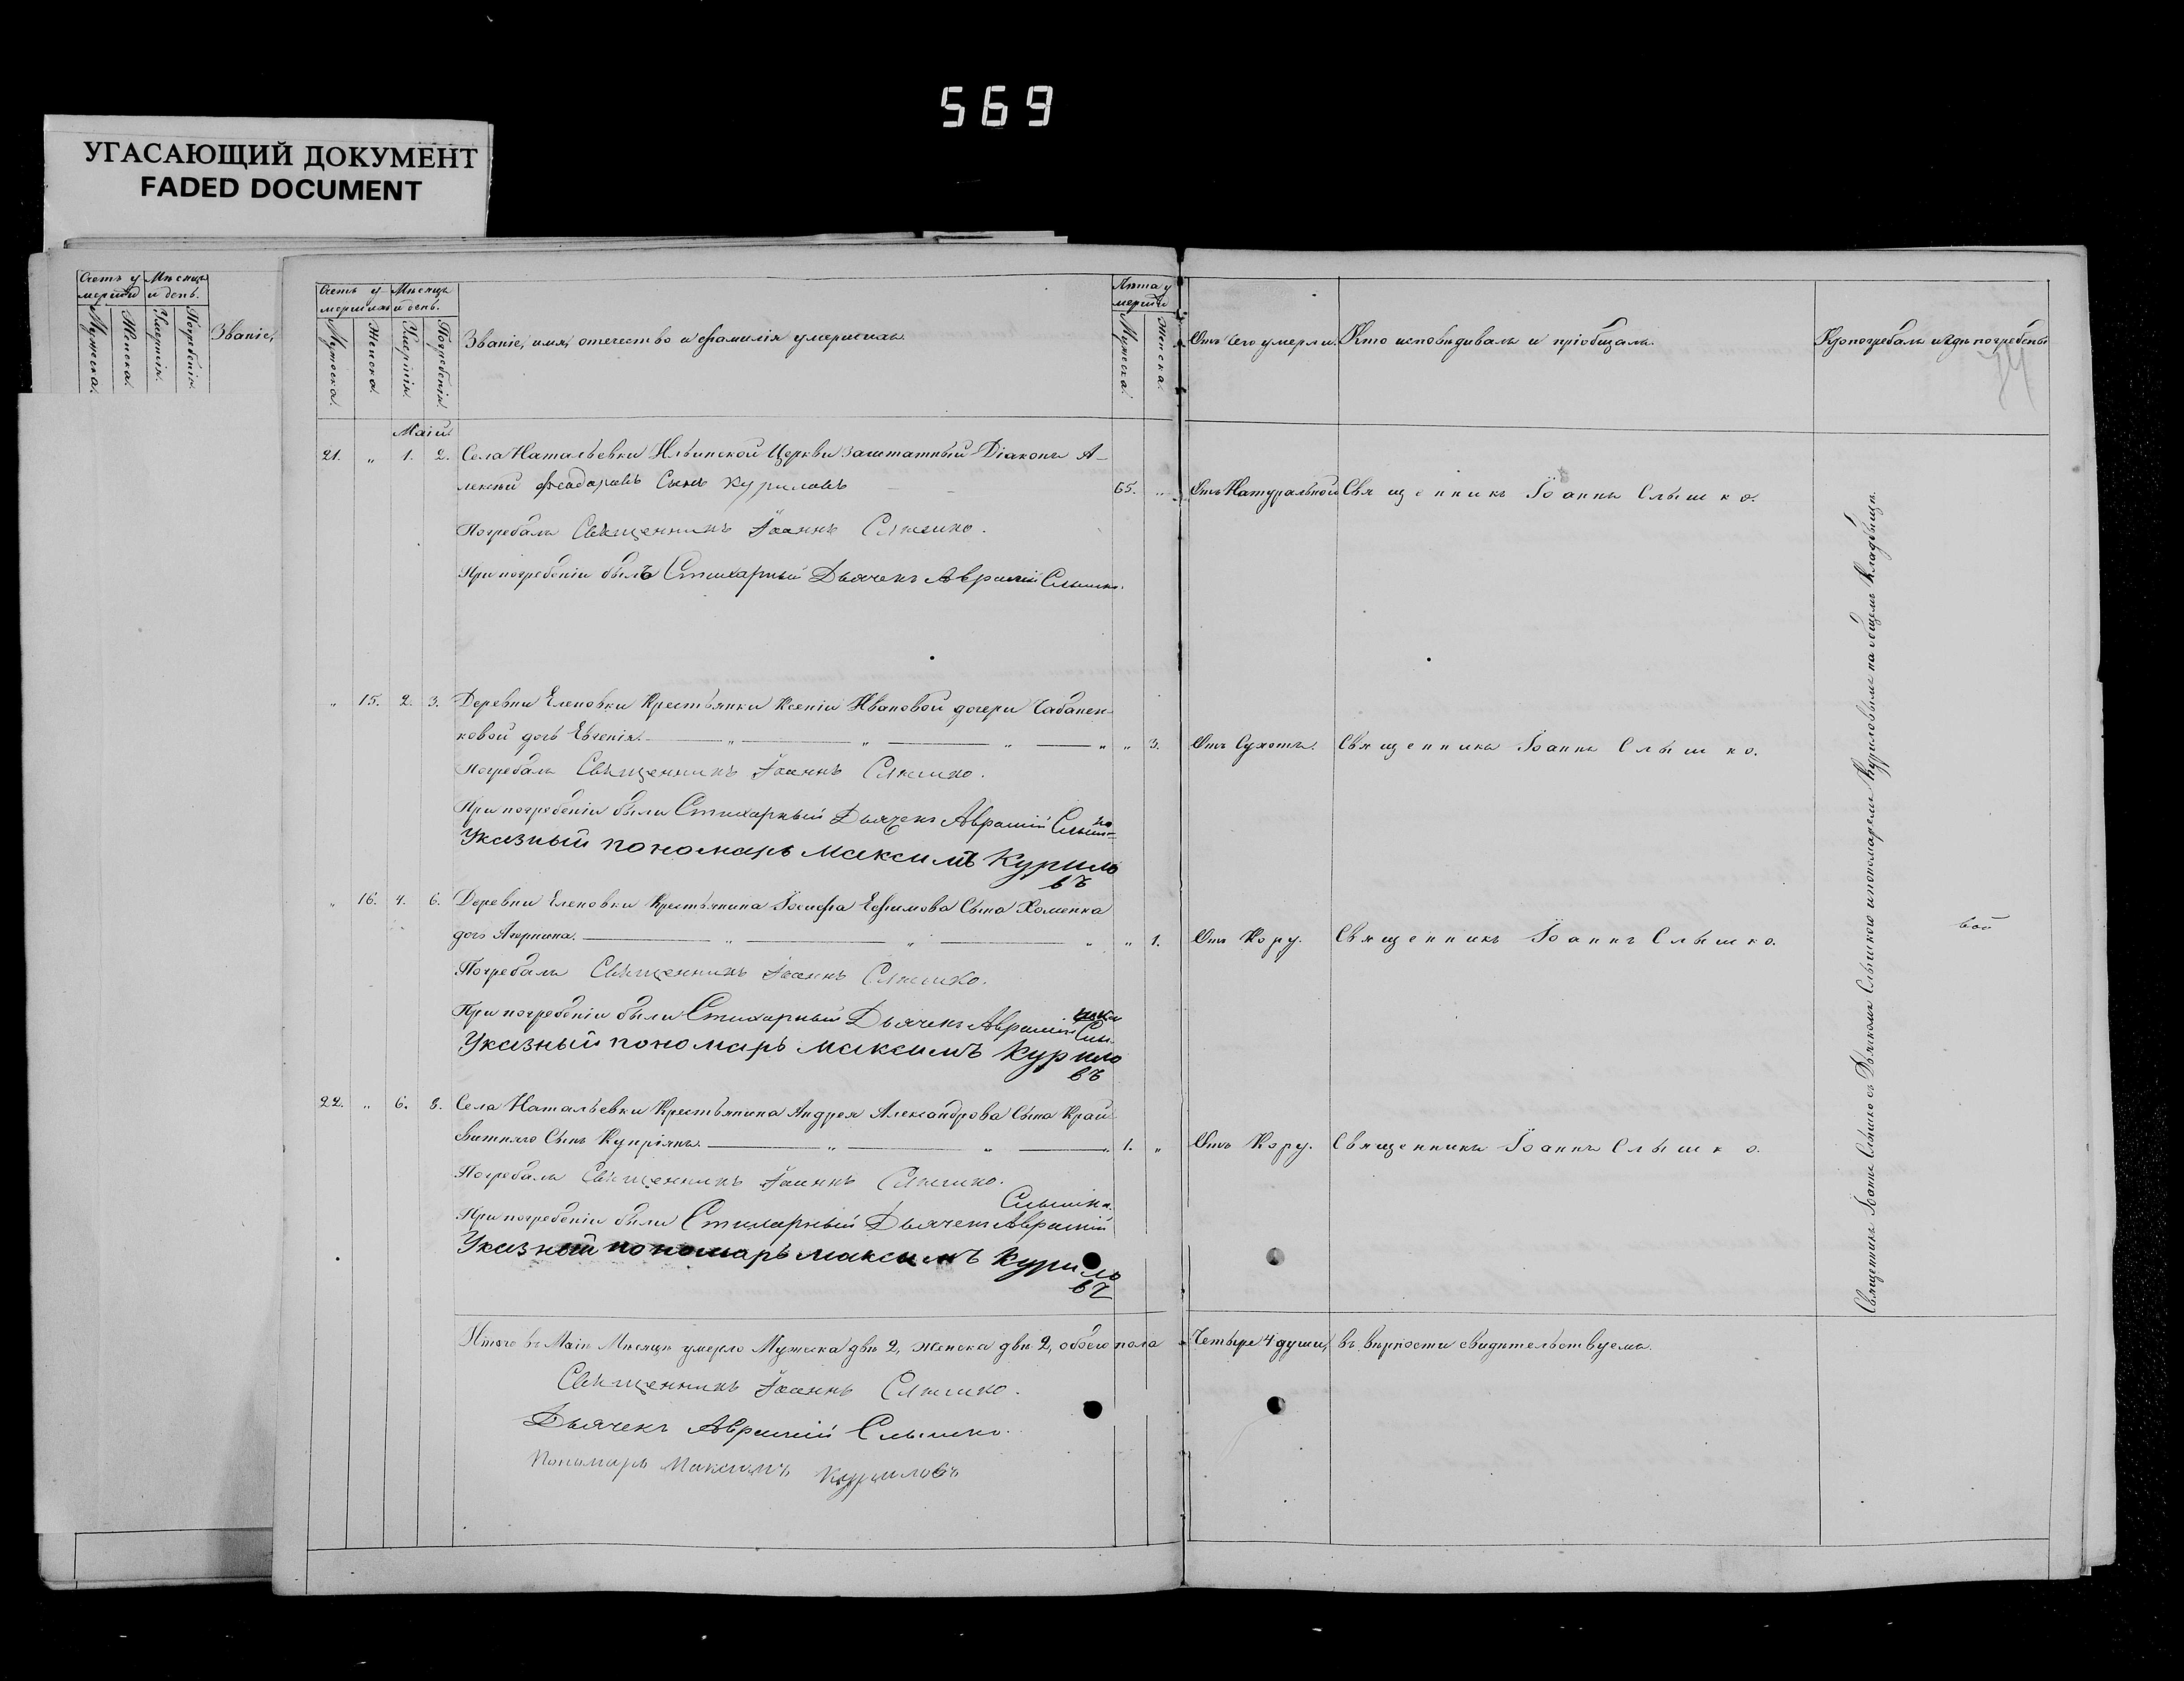 569
УГАСАЮЩИЙ ДОКУМЕНТ
FADED DOCUMENT
Счетъ у Мѣсяцъ
мершихъ и день.
Мужеска. Женска. Умертія. Погребенія. Званіе,
Счетъ у Мѣсяцъ
мершихъ и день.
Мужеска. Женска. Умертія. Погребенія.
Званіе, имя, отечество и фамилія умершихъ.
Лѣта у
мерших
Мужеска. Женска.
Отъ чего умерли. Кто исповѣдывалъ и пріобщалъ. Кто погребалъ и гдѣ погребены
Маій.
21. „ 1. 2. Села Натальевки Ильинской Церкви заштатный Діаконъ А-
лексѣй Феодоровъ Сынъ Куриловъ 65. „ Отъ Натуральной Священникъ Іоаннъ Слышко.
Погребалъ Священникъ Іоаннъ Слышко.
При погребеніи былъ Стихарный Дьячекъ Аврамій Слышко.
„ 15. 2. 3. Деревни Еленовки Крестьянки Ксеніи Ивановой дочери Чабанен-
ковой дочь Евгенія. „ „ „ „ „ 3. Отъ Сухоты. Священникъ Іоаннъ Слышко.
Погребалъ Священникъ Іоаннъ Слышко.
При погребеніи были Стихарный Дьячекъ Аврамій Слыш-
ко
Указный пономарь Максимъ Курило
въ
„ 16. 4. 6. Деревни Еленовки Крестьянина Іосифа Ефимова Сына Хоменка
дочь Агрипина. „ „ „ „ 1. Отъ Кору. Священникъ Іоаннъ Слышко.
Погребалъ Священникъ Іоаннъ Слышко.
При погребеніи были Стихарный Дьячекъ Аврамій Слы-
шко
Указный пономарь Максимъ Курило
въ
22. „ 6. 8. Села Натальевки Крестьянина Андрея Александрова Сына Край-
Сынъ Купріянъ. „ „ „ 1. „ Отъ Кору. Священникъ Іоаннъ Слышко.
Погребалъ Священникъ Іоаннъ Слышко.
Слышко.
При погребеніи были Стихарный Дьячекъ Аврамій
Указный пономарь Максимъ Курило
въ
Священникъ Іоаннъ Слышко съ Дьячкомъ Слышкою и пономаремъ Куриловымъ на общемъ Кладбищѣ.
вой
Итого въ Маіи Мѣсяцѣ умерло Мужеска двѣ 2, женска двѣ 2, обоего пола Четыре 4 души, въ вѣрности свидѣтельствуемъ.
Священникъ Іоаннъ Слышко.
Дьячекъ Аврамій Слышко.
Пономарь Максимъ Куриловъ